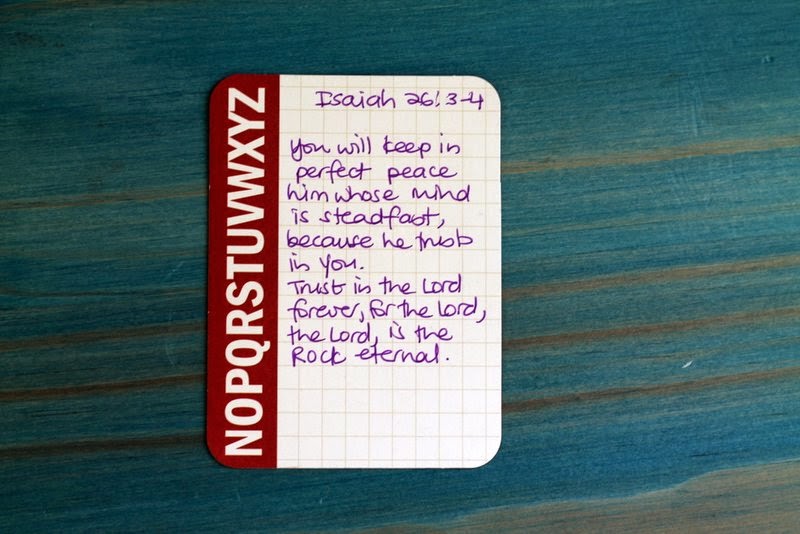 NOPQRSTUVWXYZ
Isaiah 26:3-4
You will keep in
perfect peace
him whose mind
is steadfast,
because he trusts
in you.
Trust in the Lord
forever, for the Lord,
the Lord, is the
Rock eternal.